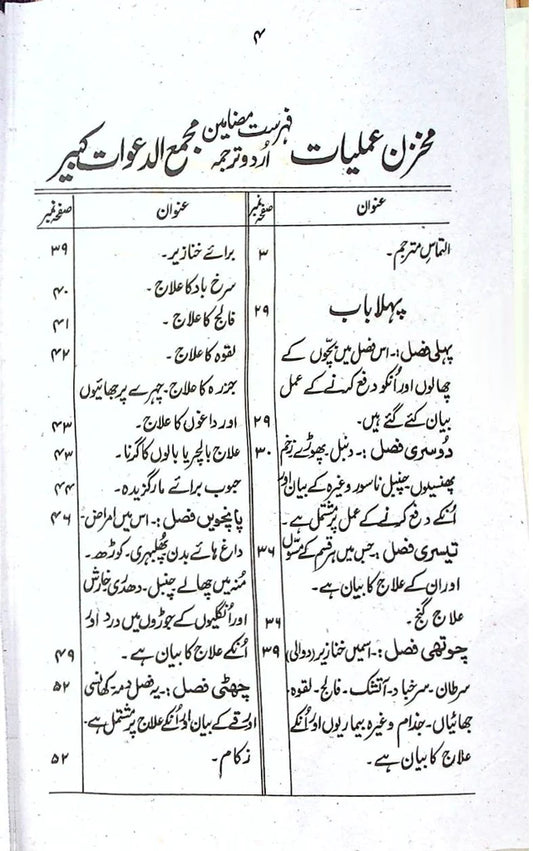 ۴
مخزن عملیات فہرست مضامین اُردو ترجمہ مجمع الدعوات کبیر
عنوان صفحہ نمبر
التماسِ مترجم۔ ۳
پہلا باب ۲۹
پہلی فصل :۔ اس فصل میں بچّوں کے
چھالوں اور اُنکو دفع کرنے کے عمل
بیان کئے گئے ہیں۔ ۲۹
دُوسری فصل :۔ دنبل۔ پھوڑے زخم ۳۰
پھنسیوں۔ چنبل ناسور وغیرہ کے بیان اور
اُنکے دفع کرنے کے عمل پر مشتمل ہے۔
تیسری فصل :۔ جس میں ہر قسم کے مسّوں ۳۶
اور ان کے علاج کا بیان ہے۔
علاج گنج۔ ۳۶
چوتھی فصل :۔ اسمیں خنازیر (دوالی) ۳۹
سرطان۔ سرخباد۔ آتشک۔ فالج۔ لقوہ۔
چھائیاں۔ جذام وغیرہ بیماریوں اور اُنکے
علاج کا بیان ہے۔
عنوان صفحہ نمبر
برائے خنازیر۔ ۳۹
سرخ باد کا علاج۔ ۴۰
فالج کا علاج۔ ۴۱
لقوہ کا علاج۔ ۴۲
کا علاج۔ چہرے پر چھائیوں
اور داغوں کا علاج۔ ۴۳
علاج بالچر یا بالوں کا گرنا۔ ۴۳
جوب برائے مارگزیدہ۔ ۴۴
پانچویں فصل :۔ اس میں امراض۔ ۴۶
داغ ہائے بدن پھلبہری۔ کوڑھ۔
مُنہ میں چھالے چنبل۔ دھدری خارش
اور اُنگلیوں کے جوڑوں میں درد اور
اُنکے علاج کا بیان ہے۔ ۴۹
چھٹی فصل :۔ یہ فصل دمہ۔ کھانسی ۵۲
اور قے کے بیان اور اُنکے علاج پر مشتمل ہے۔
زکام۔ ۵۲